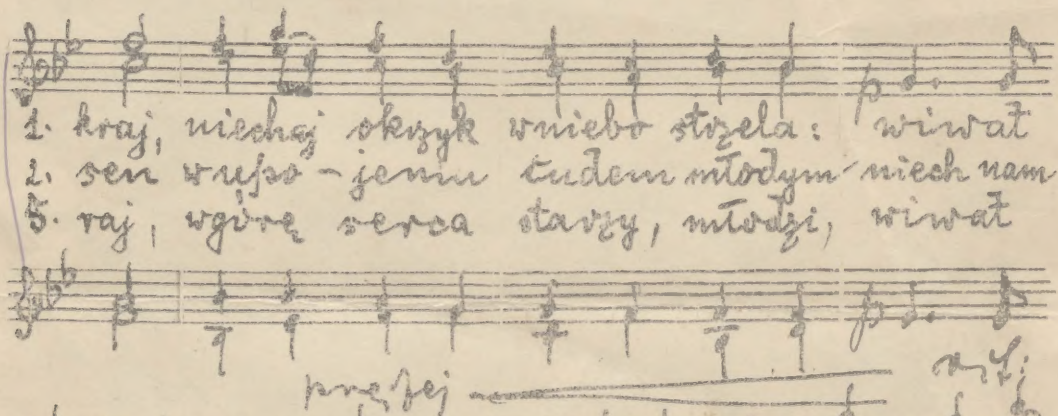 1. kraj, niechaj okrzyk wniebo strzela: wiwat
2. sen wupo - jeniu cudem młodym niech nam
5. raj, wgórę serca starzy, młodzi, wiwat
prężej